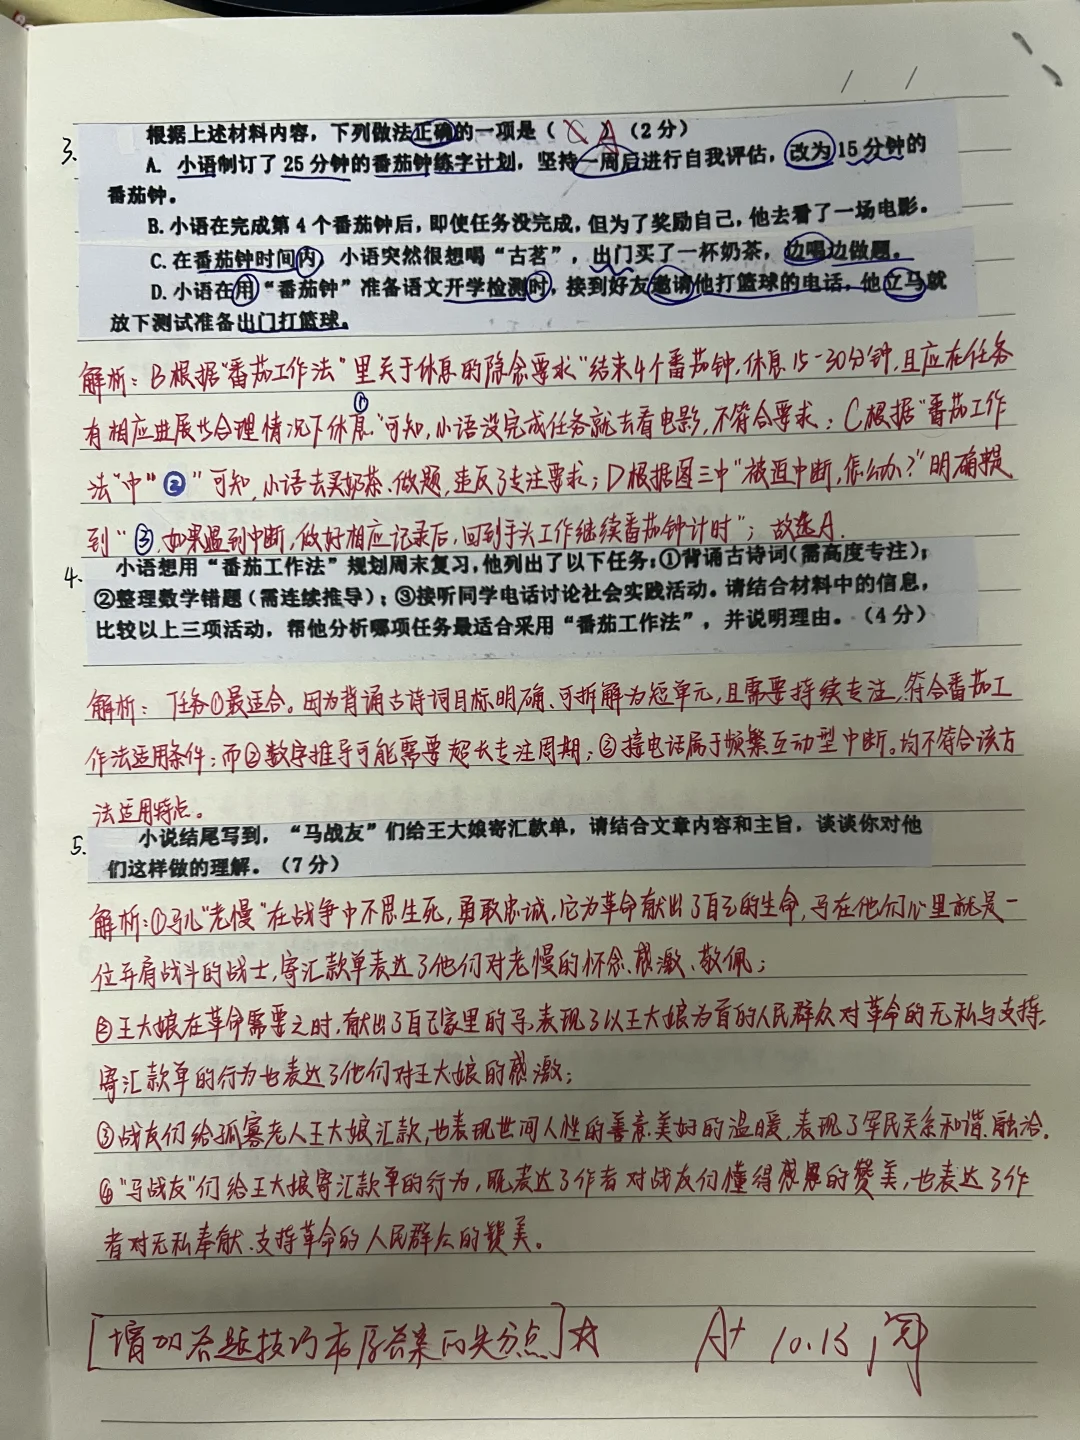 3.
根据上述材料内容，下列做法正确的一项是（ C A ）（2分）
A. 小语制订了25分钟的番茄钟练字计划，坚持一周后进行自我评估，改为15分钟的
番茄钟。
B. 小语在完成第4个番茄钟后，即使任务没完成，但为了奖励自己，他去看了一场电影。
C. 在番茄钟时间内，小语突然很想喝“古茗”，出门买了一杯奶茶，边喝边做题。
D. 小语在用“番茄钟”准备语文开学检测时，接到好友邀请他打篮球的电话，他立马就
放下测试准备出门打篮球。
解析：B根据“番茄工作法”里关于休息的隐念要求“结束4个番茄钟，休息15-30分钟，且应在任务
有相应进展与合理情况下休息”①可知，小语没完成任务就去看电影，不符合要求；C根据“番茄工作
法“中”②”可知，小语去买奶茶、做题，违反了专注要求；D根据图三中“被迫中断，怎么办？”明确提
到“③，如果遇到中断，做好相应记录后，回到手头工作继续番茄钟计时”；故选A.
4.
小语想用“番茄工作法”规划周末复习，他列出了以下任务：①背诵古诗词（需高度专注）；
②整理数学错题（需连续推导）；③接听同学电话讨论社会实践活动。请结合材料中的信息，
比较以上三项活动，帮他分析哪项任务最适合采用“番茄工作法”，并说明理由。（4分）
解析：任务①最适合。因为背诵古诗词目标明确、可拆解为短单元，且需要持续专注，符合番茄工
作法运用条件；而②数字推导可能需要超长专注周期；③接电话属于频繁互动型中断。均不符合该方
法运用特点。
5.
小说结尾写到，“马战友”们给王大娘寄汇款单，请结合文章内容和主旨，谈谈你对他
们这样做的理解。（7分）
解析：①马儿“老慢”在战争中不思生死，勇敢忠诚，它为革命献出了自己的生命，马在他们心里就是一
位并肩战斗的战士，寄汇款单表达了他们对老慢的怀念、感激、敬佩；
②王大娘在革命需要之时，献出了自己家里的马，表现了以王大娘为首的人民群众对革命的无私与支持，
寄汇款单的行为也表达了他们对王大娘的感激；
③战友们给孤寡老人王大娘汇款，也表现世间人性的善意美好的温暖，表现了军民关系和谐、融洽。
④“马战友”们给王大娘寄汇款单的行为，既表达了作者对战友们懂得感恩的赞美，也表达了作
者对无私奉献、支持革命的人民群众的赞美。
[增加答题技巧和原答案的失分点]☆ A+ 10.13